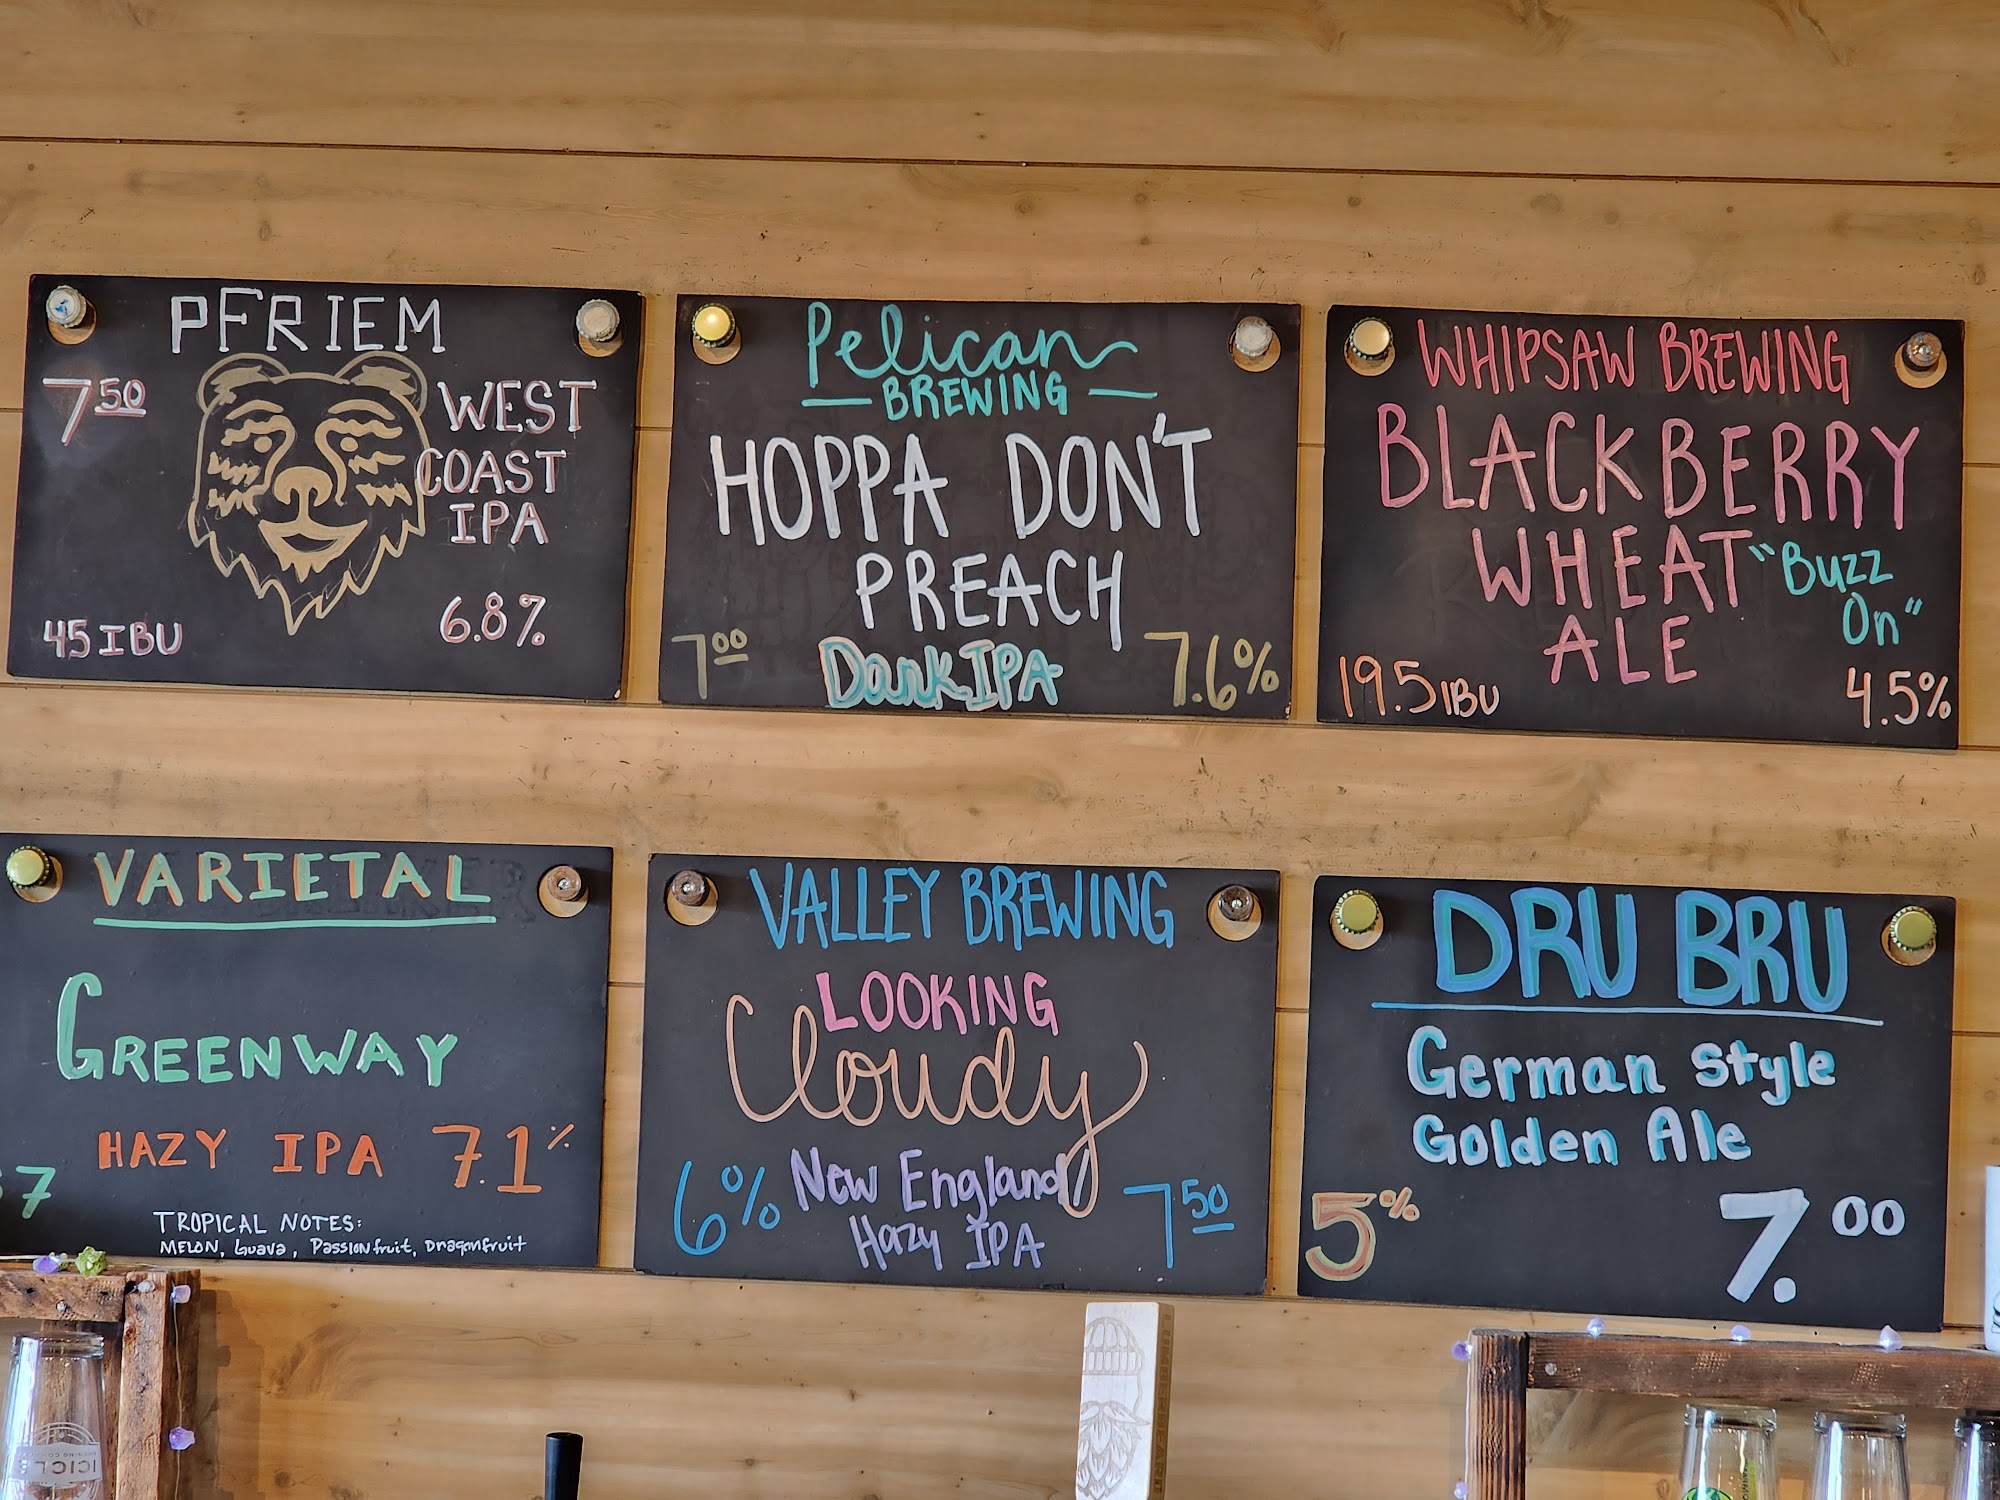 PFRIEM
7.50
WEST
COAST
IPA
45 IBU
6.8%
Pelican
BREWING
HOPPA DON'T
PREACH
7.00
Dark IPA
7.6%
WHIPSAW BREWING
BLACKBERRY
WHEAT "Buzz
On"
ALE
19.5 IBU
4.5%
VARIETAL
GREENWAY
HAZY IPA 7.1%
7
TROPICAL NOTES:
MELON, Guava, Passionfruit, Dragonfruit
VALLEY BREWING
LOOKING
Cloudy
6% New England 7.50
Hazy IPA
DRU BRU
German Style
Golden Ale
5%
7.00
ICICLE